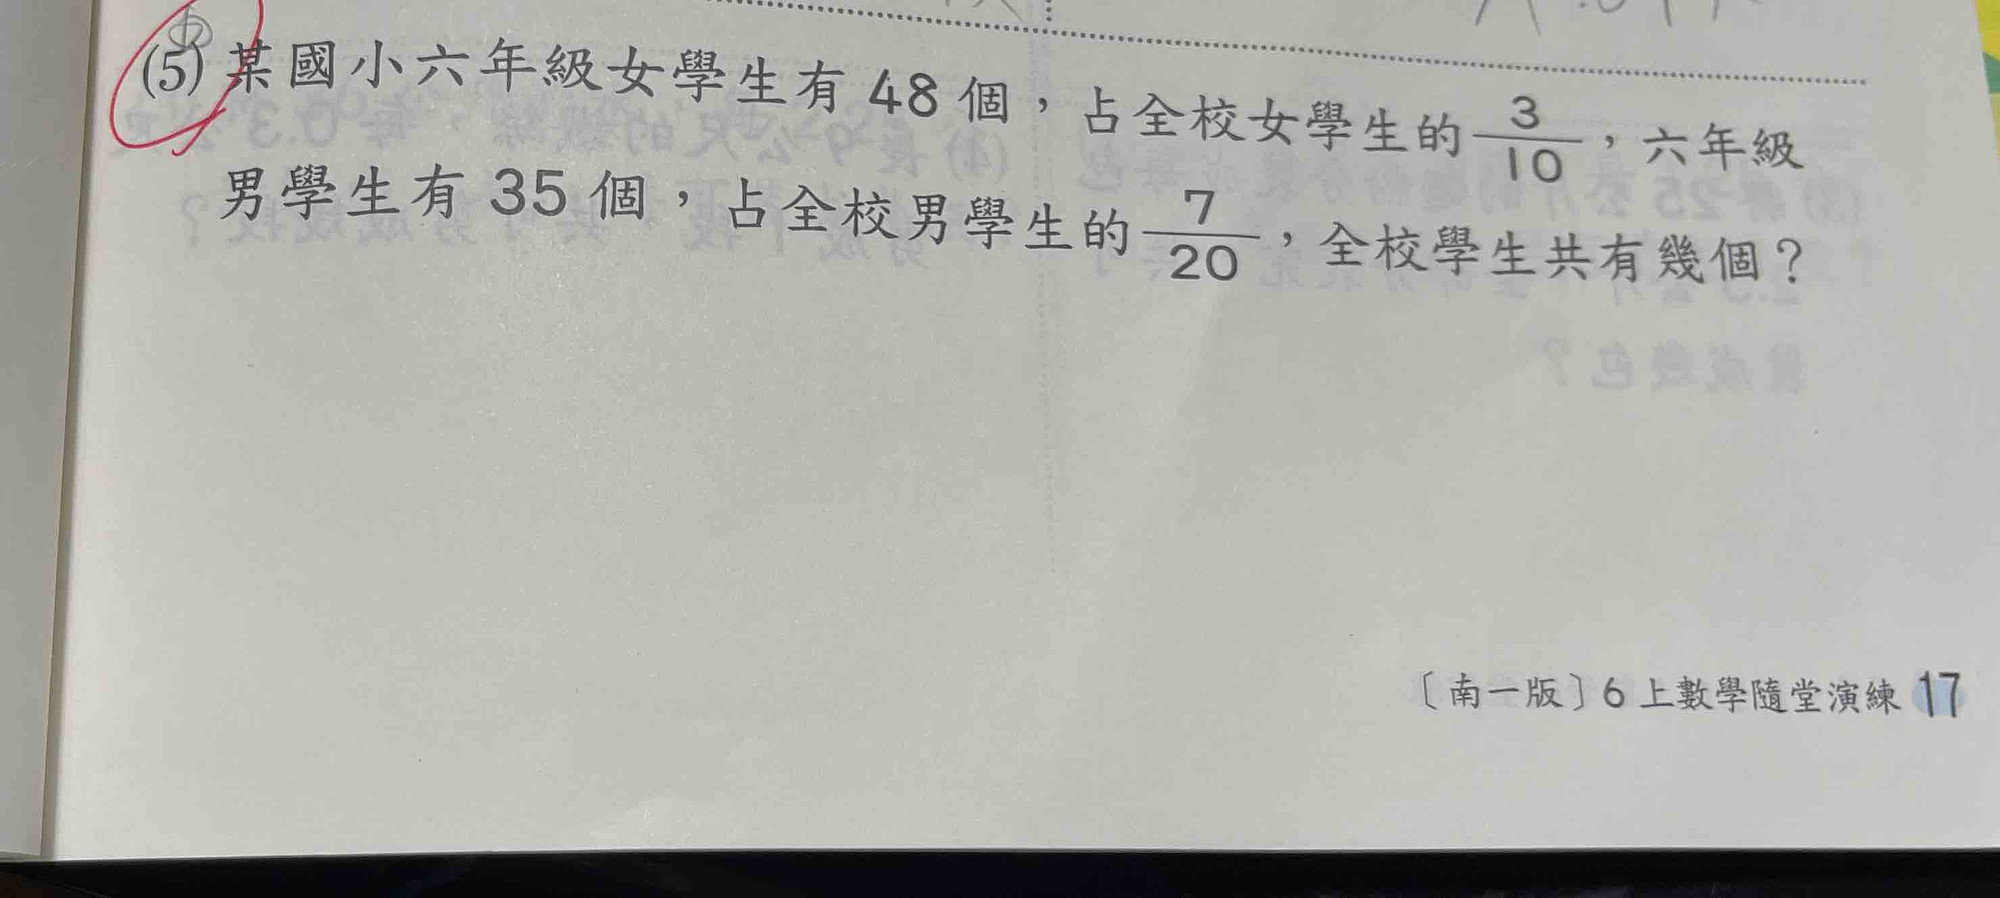 (5) 某國小六年級女學生有 48 個，占全校女學生的 3/10，六年級
男學生有 35 個，占全校男學生的 7/20，全校學生共有幾個？
〔南一版〕6 上數學隨堂演練 17